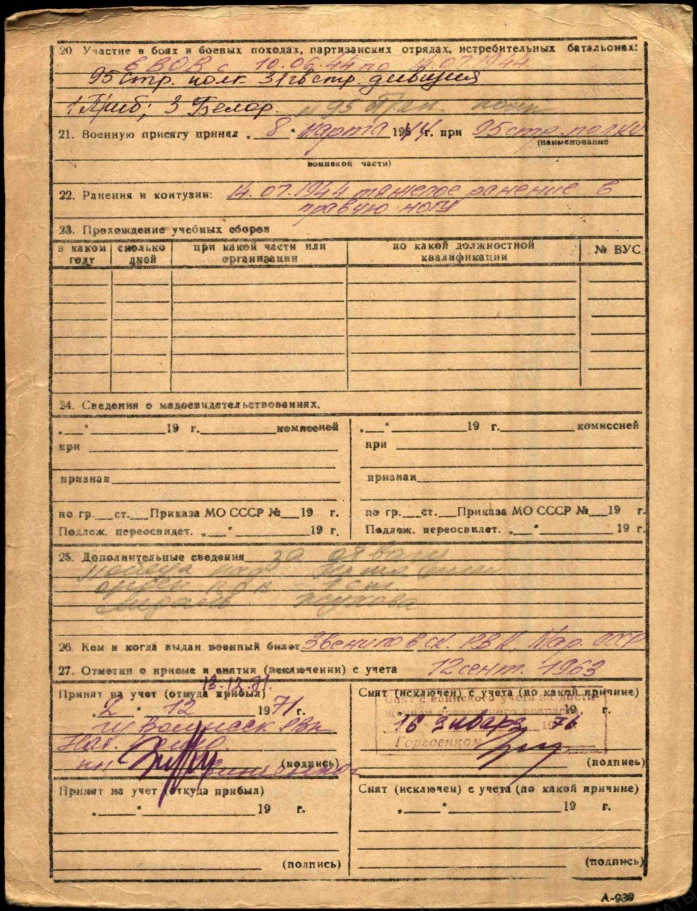 20 Участие в боях и боевых походах, партизанских отрядах, истребительных батальонах:
в ВОВ с 10.06.44 по 14.07.1944
95 стр. полк 31 гв стр. дивизия
1 Приб; 3 Белор. 95 полк
21. Военную присягу принял „8" марта 1944 г. при 95 стр. полку
(наименование
воинской части)
22. Ранения и контузии: 14.07.1944 тяжелое ранение в
правую ногу
23. Прохождение учебных сборов
в каком году
сколько дней
при какой части или организации
по какой должностной квалификации
№ ВУС
24. Сведения о медосвидетельствованиях.
„__"________19 г.________комиссией
при
признан
по гр.___ст.___Приказа МО СССР №___19 г.
Подлеж. переосвидет. „__"________19 г.
„__"________19 г.________комиссией
при
признан
по гр.___ст.___Приказа МО СССР №___19 г.
Подлеж. переосвидет. „__"________19 г.
25. Дополнительные сведения за
Медаль Жукова
26. Кем и когда выдан военный билет Звениговск. РВК, Мар. АССР
27. Отметки о приеме и снятии (исключении) с учета 12 сент. 1963
Принят на учет (откуда прибыл)
13.12.71
„2" 12 1971 г.
Волжск
Нач.
(подпись)
Снят (исключен) с учета (по какой причине)
Снят с воинского учета по
16 января 1976 г.
Горвоенком
(подпись)
Принят на учет (откуда прибыл)
„__"________19 г.
(подпись)
Снят (исключен) с учета (по какой причине)
„__"________19 г.
(подпись)
А-939